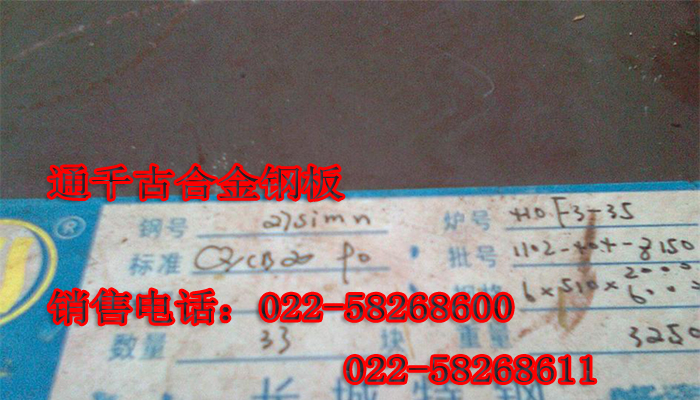 通千古合金钢板
®
钢号 27simn 炉号 HOF3-35
标准 批号 1102-404-8150
规格 6×510×2000 6000
销售电话：022-58268600
数量 33 块 重量 3250
022-58268611
长城特钢